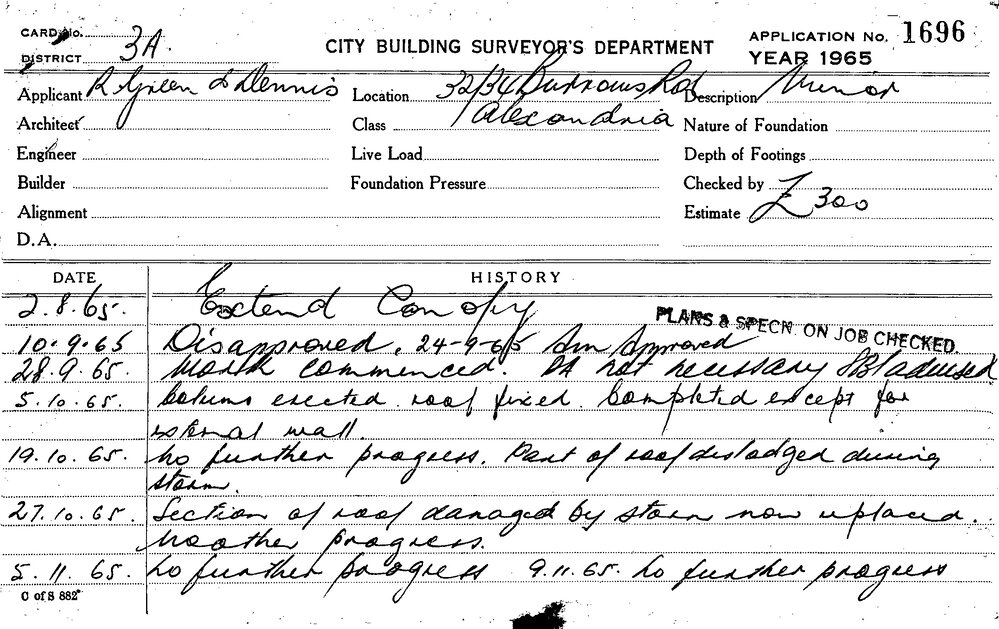 CARD No. APPLICATION No. 1696
DISTRICT 3A. CITY BUILDING SURVEYOR'S DEPARTMENT YEAR 1965
Applicant R Green & Dennis Location 32/34 Burrows Rd Description Minor
Architect Class Alexandria Nature of Foundation
Engineer Live Load Depth of Footings
Builder Foundation Pressure Checked by
Alignment Estimate £300
D.A.
DATE HISTORY
2.8.65. Extend Canopy
PLANS & SPECN. ON JOB CHECKED.
10.9.65 Disapproved. 24-9-65 Approved
28.9.65. Work commenced. DA not necessary advised
5.10.65. Columns erected roof fixed. Completed except for
external wall.
19.10.65. No further progress. Part of roof dislodged during
storm.
27.10.65. Section of roof damaged by storm now replaced.
No other progress.
5.11.65. No further progress 9.11.65. No further progress
C of S 882